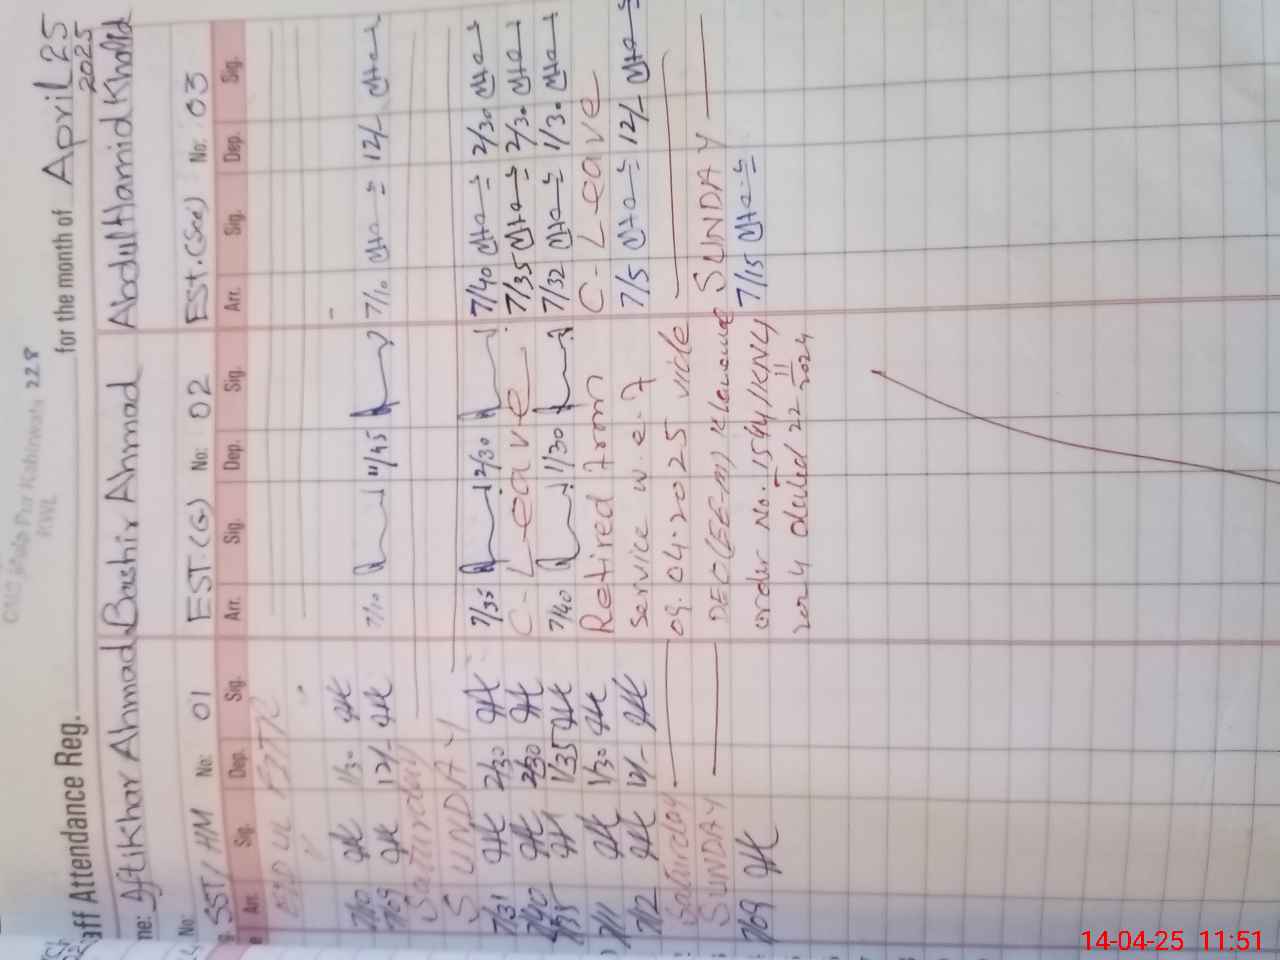 Staff Attendance Reg. for the month of April 25
2025
Iftikhar Ahmad Bashir Ahmad Abdul Hamid Khalid
No: 01 EST. (G) No: 02 Est. (Sec) No: 03
SST / HM
Arr. Sig. Dep. Sig. Arr. Sig. Dep. Sig. Arr. Sig. Dep. Sig.
EID UL FITR
7/10 1/30
7/09 12/- 7/10 11/45 7/10 12/-
Saturday
SUNDAY
7/31 2/30 7/35 2/30 7/40 2/30
7/40 2/30 C-Leave 7/35 2/30
7/35 1/35 7/40 1/30 7/32 1/30
7/11 1/30 Retired from C-Leave
7/12 12/- Service w.e.f 7/5 12/-
Saturday 09.04.2025 vide
SUNDAY DEO (EE-M) Khanewal SUNDAY
7/09 order No. 1544/KNW 7/15
2024 dated 22-11-2024
14-04-25 11:51